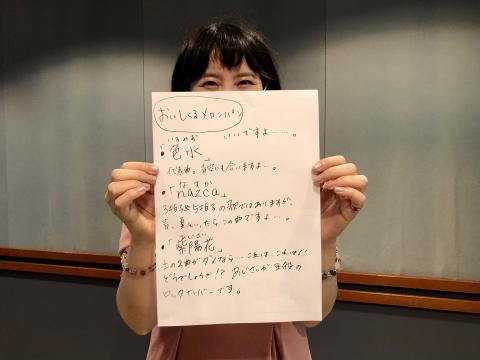 おいしくるメロンパン
いろみず いいですよ……。
・「色水」
代表曲。青空にも合いますよ…。
なすか
・「nazca」
3拍子や5拍子の歌ではありますが、
青、夏といったらこの曲ですよ…。
あじさい
・「紫陽花」
上の2曲がダメなら…これは、これは!
どうでしょうか!? あじさいが主役の
ロックナンバーです。